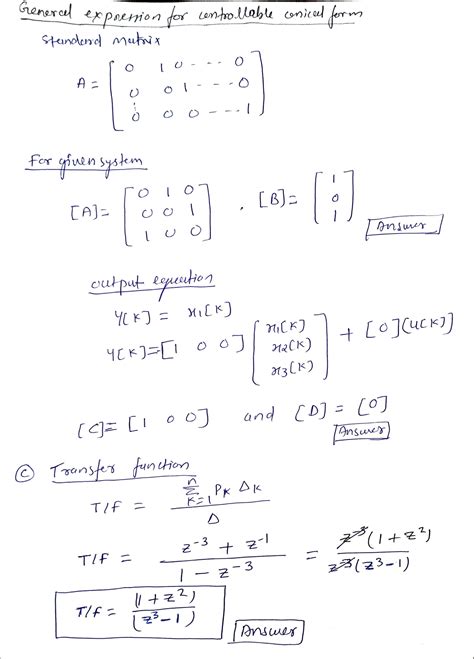 General expression for controllable conical form
Standard matrix
A = [ 0 1 0 - - - 0
0 0 1 - - - 0
⋮
0 0 0 - - - 1 ]
For given system
[A] = [ 0 1 0
0 0 1
1 0 0 ] , [B] = [ 1
0
1 ]
Answer
output equation
Y[K] = x1[K]
Y[K] = [1 0 0] [ x1[K]
x2[K]
x3[K] ] + [0][U[K]]
[C] = [1 0 0] and [D] = [0]
Answer
(c) Transfer function
T/f = n Σ K=1 PK ΔK / Δ
T/f = z^-3 + z^-1 / 1 - z^-3 = z^-3 (1 + z^2) / z^-3 (z^3 - 1)
T/f = (1 + z^2) / (z^3 - 1)
Answer